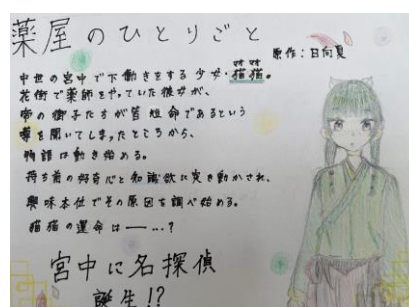 薬屋のひとりごと
原作:日向夏
中世の宮中で下働きをする少女・猫猫。
花街で薬師をやっていた彼女が、
帝の御子たちが皆短命であるという
噂を聞いてしまったところから、
物語は動き始める。
持ち前の好奇心と知識欲に突き動かされ、
興味本位でその原因を調べ始める。
猫猫の運命は――…?
宮中に名探偵
誕生!?